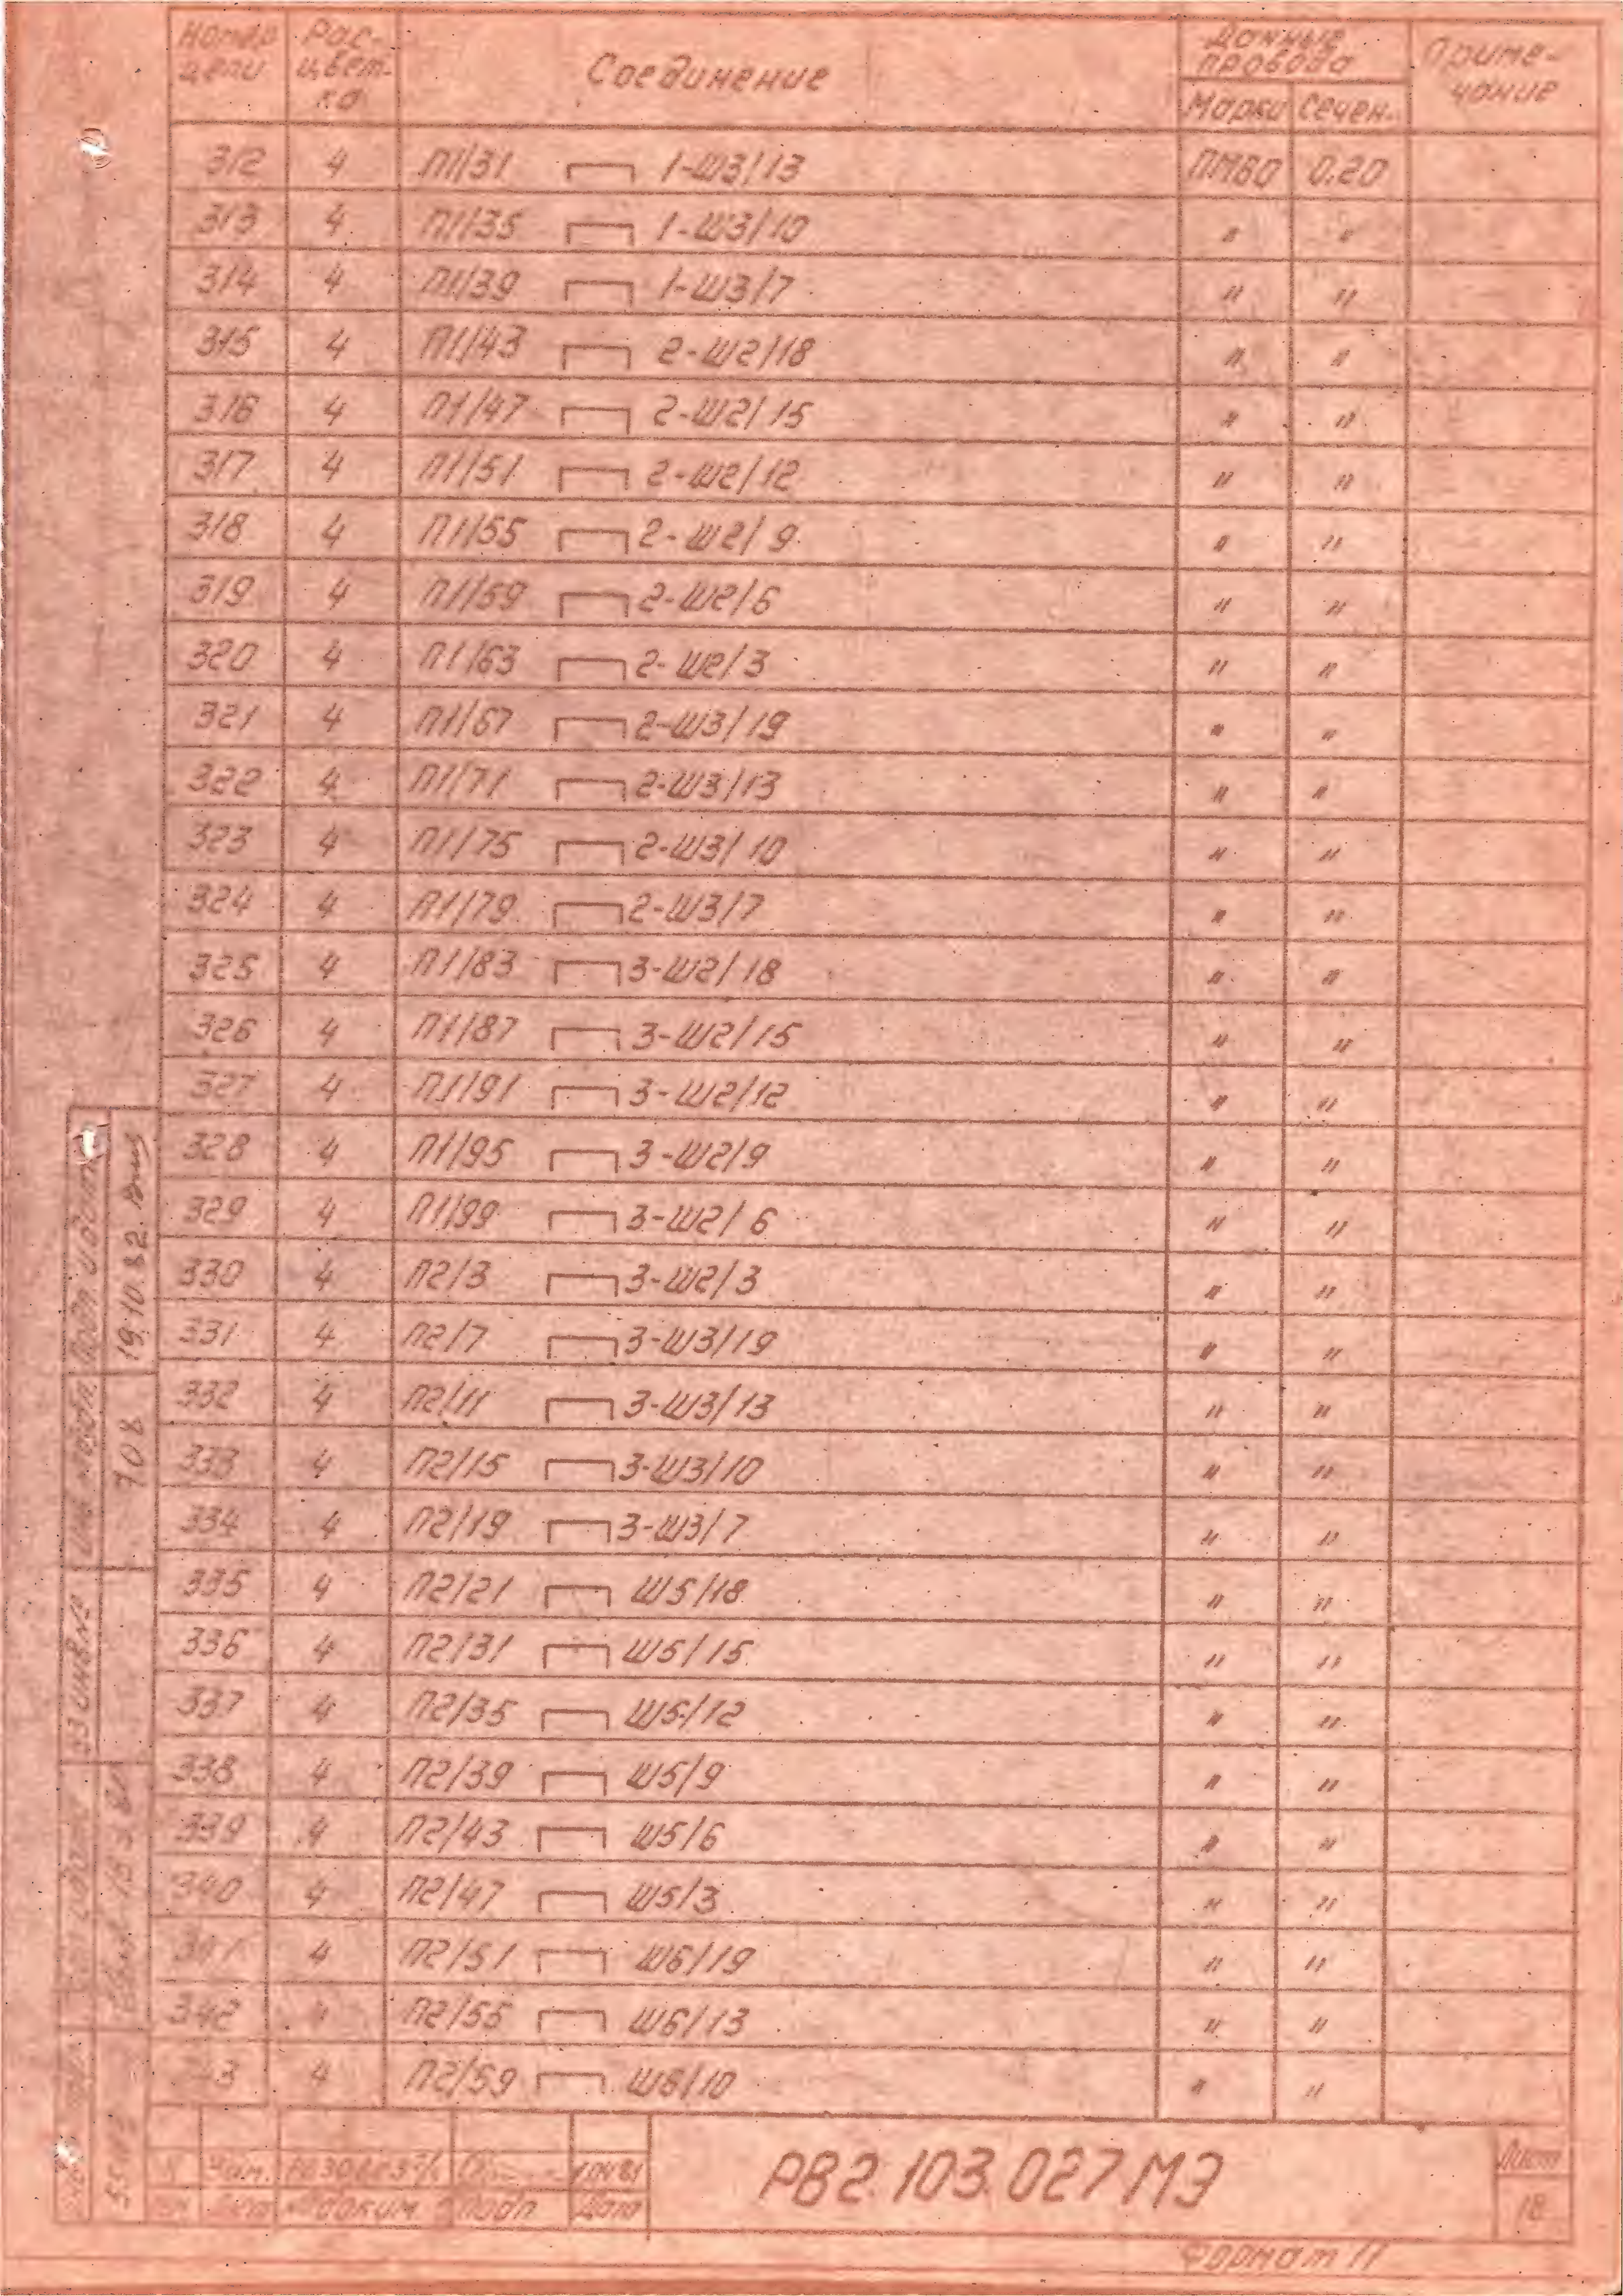 Номер цепи Рас- цвет- ка Соединение Данные провода Приме- чание
Марка Сечен.
312 4 П1/31 1-Ш3/13 ПМВО 0.20
313 4 П1/35 1-Ш3/10 " "
314 4 П1/39 1-Ш3/7 " "
315 4 П1/43 2-Ш2/18 " "
316 4 П1/47 2-Ш2/15 " "
317 4 П1/51 2-Ш2/12 " "
318 4 П1/55 2-Ш2/9 " "
319 4 П1/59 2-Ш2/6 " "
320 4 П1/63 2-Ш2/3 " "
321 4 П1/67 2-Ш3/19 " "
322 4 П1/71 2-Ш3/13 " "
323 4 П1/75 2-Ш3/10 " "
324 4 П1/79 2-Ш3/7 " "
325 4 П1/83 3-Ш2/18 " "
326 4 П1/87 3-Ш2/15 " "
327 4 П1/91 3-Ш2/12 " "
328 4 П1/95 3-Ш2/9 " "
329 4 П1/99 3-Ш2/6 " "
330 4 П2/3 3-Ш2/3 " "
331 4 П2/7 3-Ш3/19 " "
332 4 П2/11 3-Ш3/13 " "
333 4 П2/15 3-Ш3/10 " "
334 4 П2/19 3-Ш3/7 " "
335 4 П2/21 Ш5/18 " "
336 4 П2/31 Ш5/15 " "
337 4 П2/35 Ш5/12 " "
338 4 П2/39 Ш5/9 " "
339 4 П2/43 Ш5/6 " "
340 4 П2/47 Ш5/3 " "
341 4 П2/51 Ш6/19 " "
342 4 П2/55 Ш6/13 " "
43 4 П2/59 Ш6/10 " "
Подп. и дата
19.10.82.
708
РВ2.103.027МЭ
Лист
18
Лист № докум. Подп Дата
Формат 11